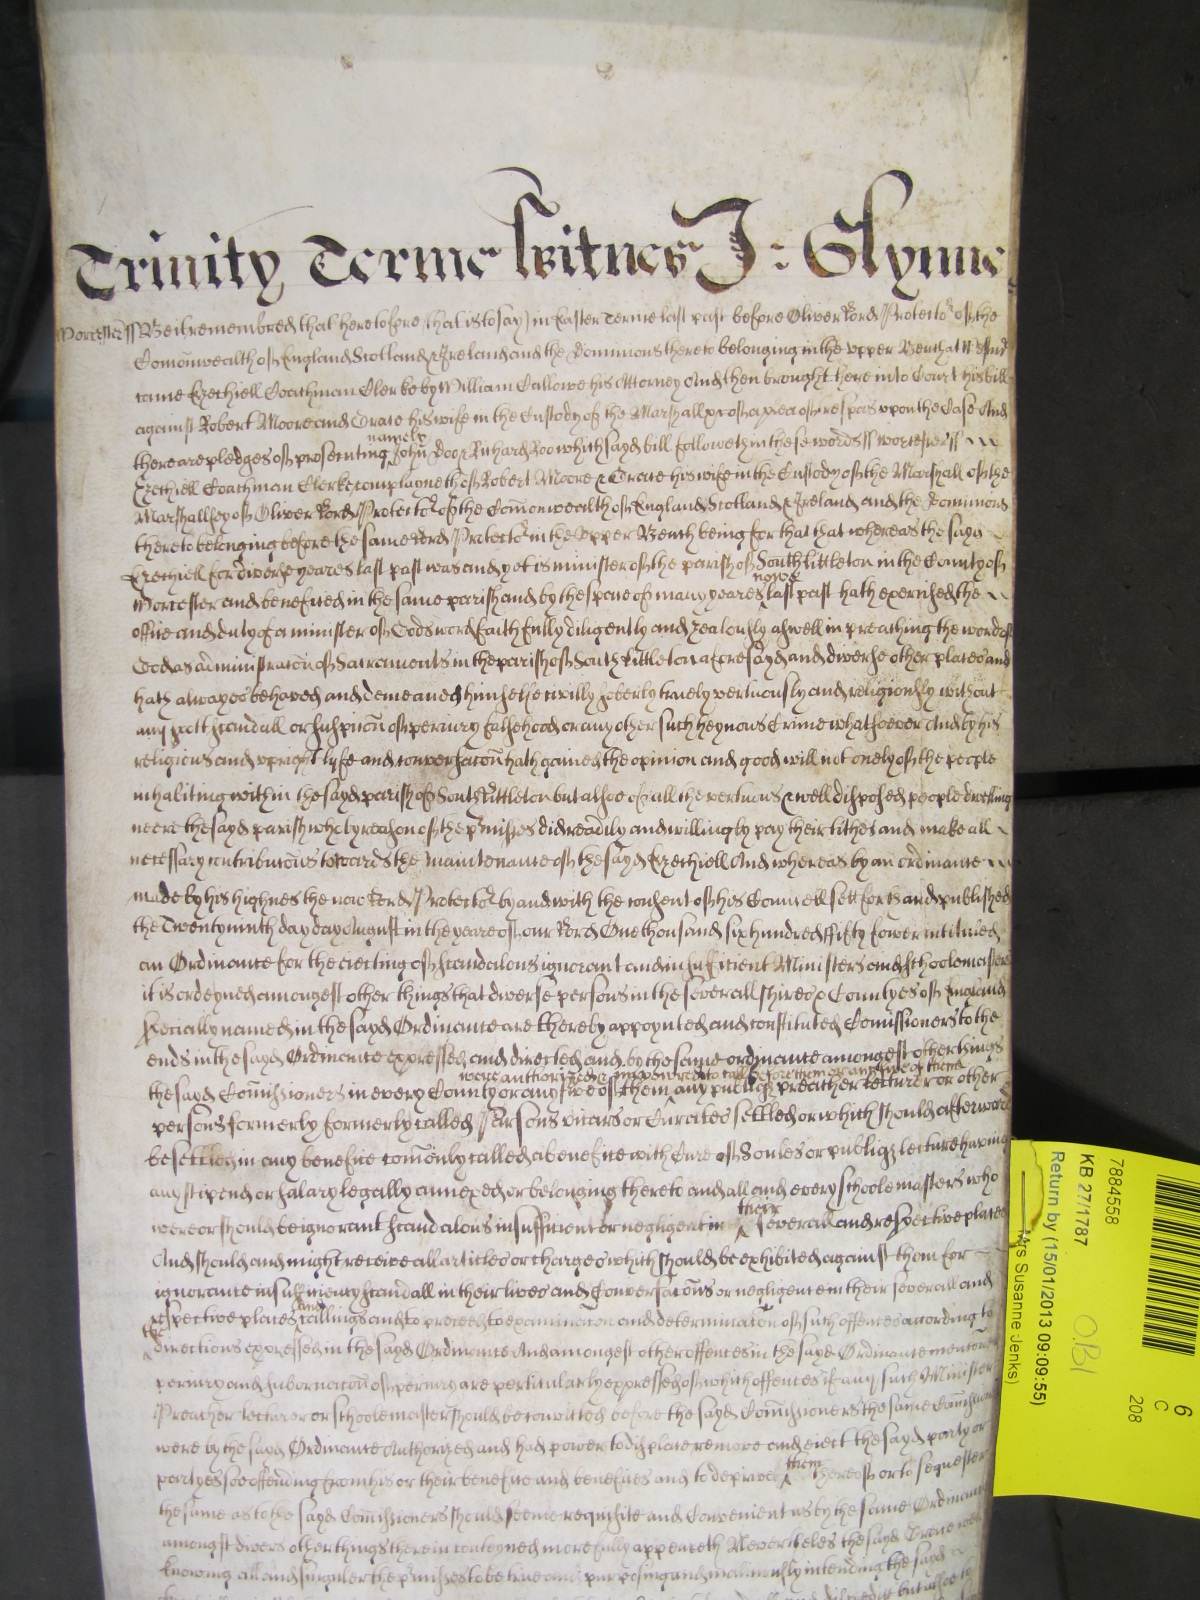 Trinity Terme Witnes J: Glynne
Worcester ss Be it remembred that heretofore (that is to say) in Easter Terme last past before Oliver Lord Protector of the
Comonwealth of England Scotland & Ireland and the Dominions thereto belonging in the upper Bench at Westmr
came Ezechiell Coathman Clerke by William Callowe his Attorney And then brought here into Court his bill
against Robert Moore and Grace his wife in the Custody of the Marshall &c of a plea of trespas upon the Case And
there are pledges of prosecuting namely John Doo & Richard Roo which sayd bill followeth in these words ss Worcester ss
Ezechiell Coathman Clerke complayneth of Robert Moore & Grace his wife in the Custody of the Marshall of the
Marshallsey of Oliver Lord Protector of the Comonwealth of England Scotland & Ireland and the Dominions
thereto belonging before the same Lord Protector in the Upper Bench being for that that whereas the sayd
Ezechiell for diverse yeares last past was and yet is minister of the parish of South Littleton in the County of
Worcester and beneficed in the same parish and by the space of many yeares nowe last past hath exercised the
office and duty of a minister of Gods word faithfully diligently and zealously aswell in preaching the word of
God as administracon of Sacraments in the parish of South Littleton aforesayd and diverse other places and
hath alwayes behaved and demeaned himselfe civilly soberly truely vertuously and religiously without
any spott scandall or suspicon of periury falsehood or any other such heynous Crime whatsoever And by his
religious and upright lyfe and conversacon hath gained the opinion and good will not onely of the people
inhabiting within the sayd parish of South Littleton but alsoe of all the vertuous & well disposed people dwelling
neere the sayd parish who by reason of the pmisses did readily and willingly pay their tithes and make all
necessary contributons towards the maintenance of the sayd Ezechiell And whereas by an ordinance
made by his highnes the now Lord Protector by and with the consent of his Councell sett forth and published
the Twenty ninth day day August in the yeare of our Lord One thousand six hundred fifty fower intituled
an Ordinance for the eiecting of scandalous ignorant and insufficient Ministers and schoolemasters
it is ordeyned amongest other things that diverse persons in the severall shires & Countyes of England
specially named in the sayd Ordinance are thereby appoynted and constituted Comissioners to the
ends in the sayd Ordinance expressed and directed and by the same ordinance amongest other things
the sayd Comissioners in every County or any five of them were authorized & impowred to call before them or any five of them any publiq preacher lecturer or other
persons formerly formerly called Parsons vicars or Curates settled or which should afterward
be settled in any benefice comonly called a benefice with Cure of Soules or publiq lecture having
any stipend or salary legally annexed or belonging thereto and all and every schoolemasters who
were or should be ignorant scandalous insufficient or negligent in their severall and respective places
And should and might receive all articles or charges which should be exhibited against them for
ignorance insufficiency scandall in their lives and Conversacons or negligence in their severall and
respective places and callings and to proceed to examinacon and determinacon of such offences according to
the directions expressed in the sayd Ordinance And amongest other offences in the sayd Ordinance mencon
periury and subornacon of periury are perticularly expressed of which offences if any such Minister
Preacher lecturer or schoolemaster should be convicted before the sayd Comissioners the same Comissioners
were by the sayd Ordinance Authorized and had power to displace remove and eiect the sayd party or
partyes soe offending from his or their benefice and benefices and to deprive them thereof or to sequester
the same as to the sayd Comissioners should seeme requisite and Convenient as by the same Ordinance
amongst divers other things therein conteyned more fully appeareth Neverthelesse the sayd Grace well
knowing all and singuler the pmisses to be true and purposing and maliciously intending the sayd
7884558
KB 27/1787
Return by (15/01/2013 09:09:55)
Mrs Susanne Jenks)
OBI
6
C
208